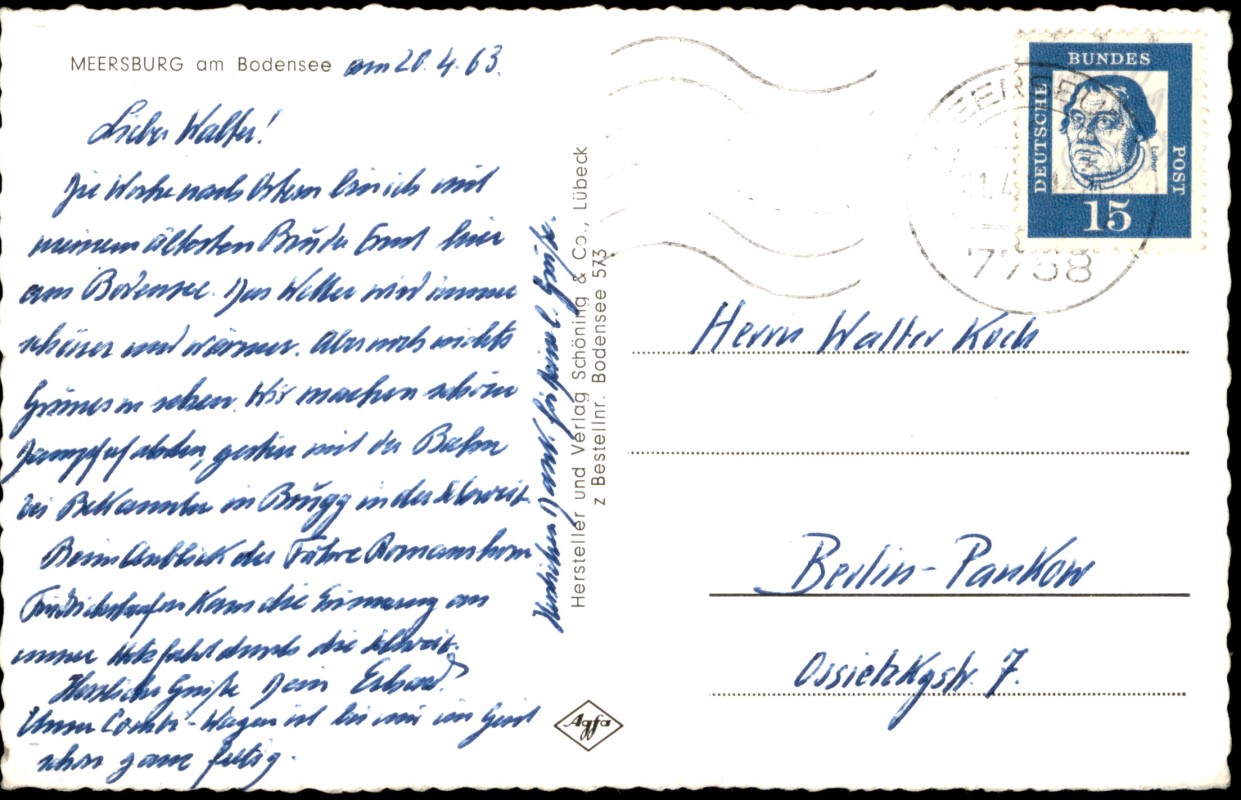 MEERSBURG am Bodensee am 20.4.63.
Lieber Walter!
Die Woche nach Ostern bin ich mit
meinem ältesten Bruder Ernst hier
am Bodensee. Das Wetter wird immer
schöner und wärmer. Aber noch nichts
Grünes zu sehen. Wir machen schöne
Dampferfahrten, gestern mit der Bahn
bei Bekannten in Brugg in der Schweiz.
Beim Anblick der Fähre Romanshorn
Friedrichshafen kam die Erinnerung an
unsere fahrt durch die Schweiz.
Herzliche Grüße Dein Erhard
Unser Combi-Wagen ist bei mir im Geist
schon ganz fertig.
Herzlichen Dank für Grüße.
Hersteller und Verlag Schöning & Co., Lübeck
z Bestellnr. Bodensee 573
Agfa
DEUTSCHE
BUNDES
POST
Luther
15
7758
Herrn Walter Koch
Berlin-Pankow
Ossietzkystr. 7.